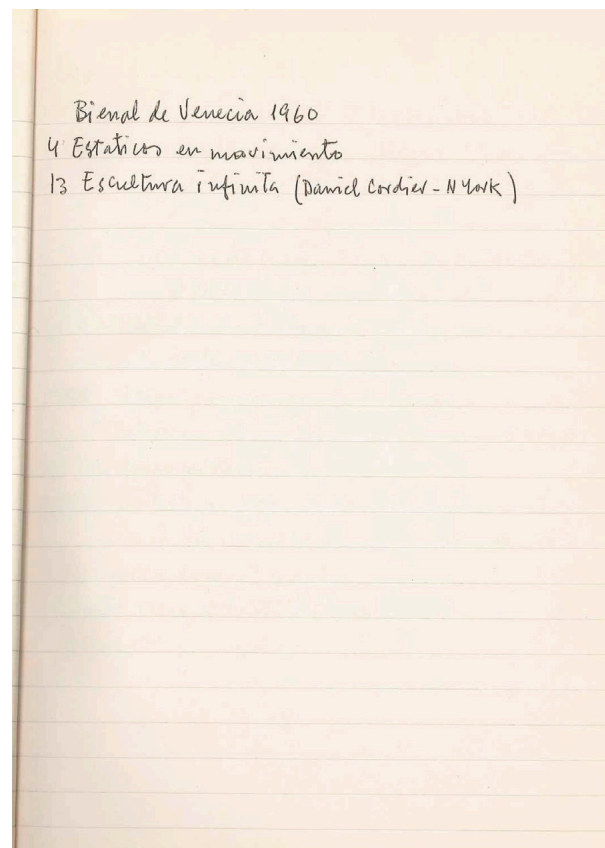 Bienal de Venecia 1960
4 Estaticos en movimiento
13 Escultura infinita (Daniel Cordier - N York)